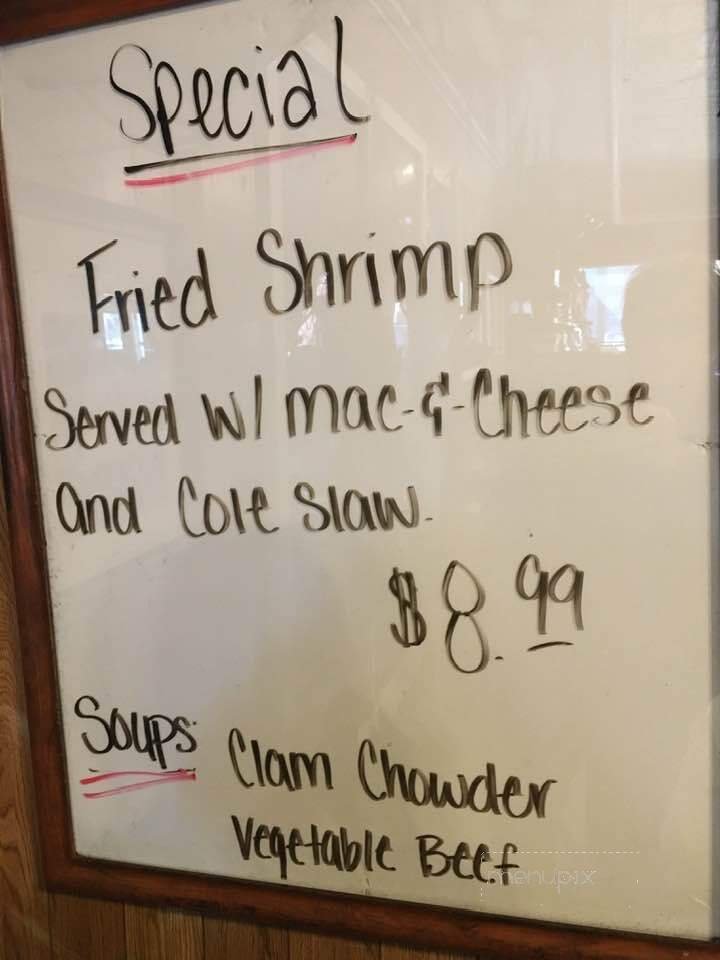 Special
Fried Shrimp
Served w/ mac-&-Cheese
and Cole Slaw.
$8.99
Soups: Clam Chowder
Vegetable Beef
menupix